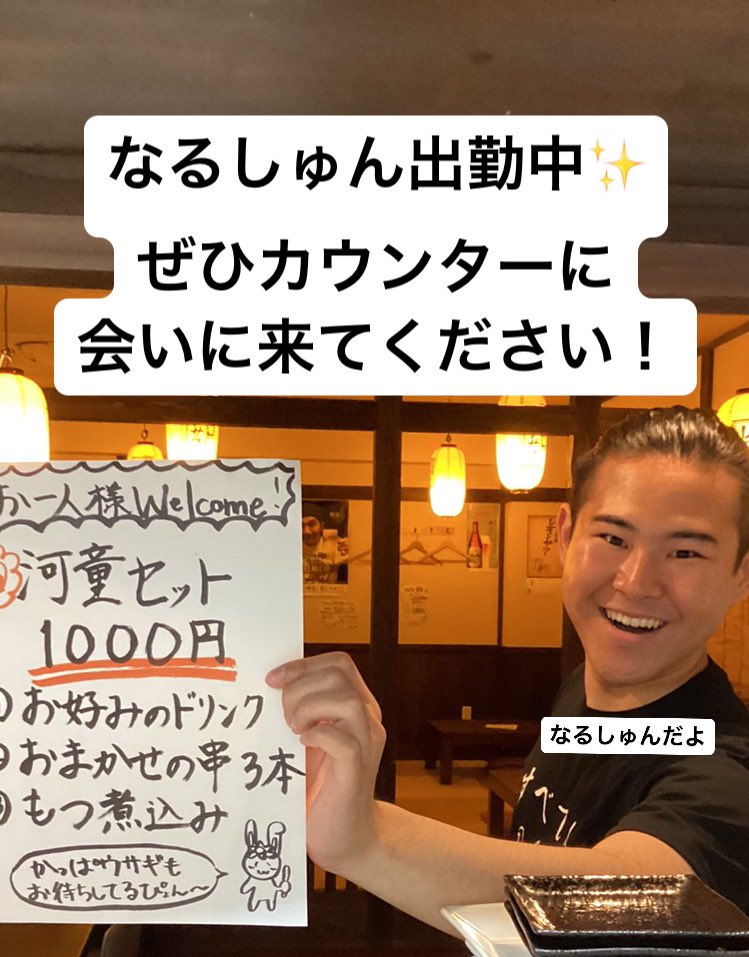 なるしゅん出勤中✨
ぜひカウンターに
会いに来てください！
お一人様Welcome!
河童セット
1000円
①お好みのドリンク
②おまかせの串3本
③もつ煮込み
かっぱウサギも
お待ちしてるぴょん〜
なるしゅんだよ